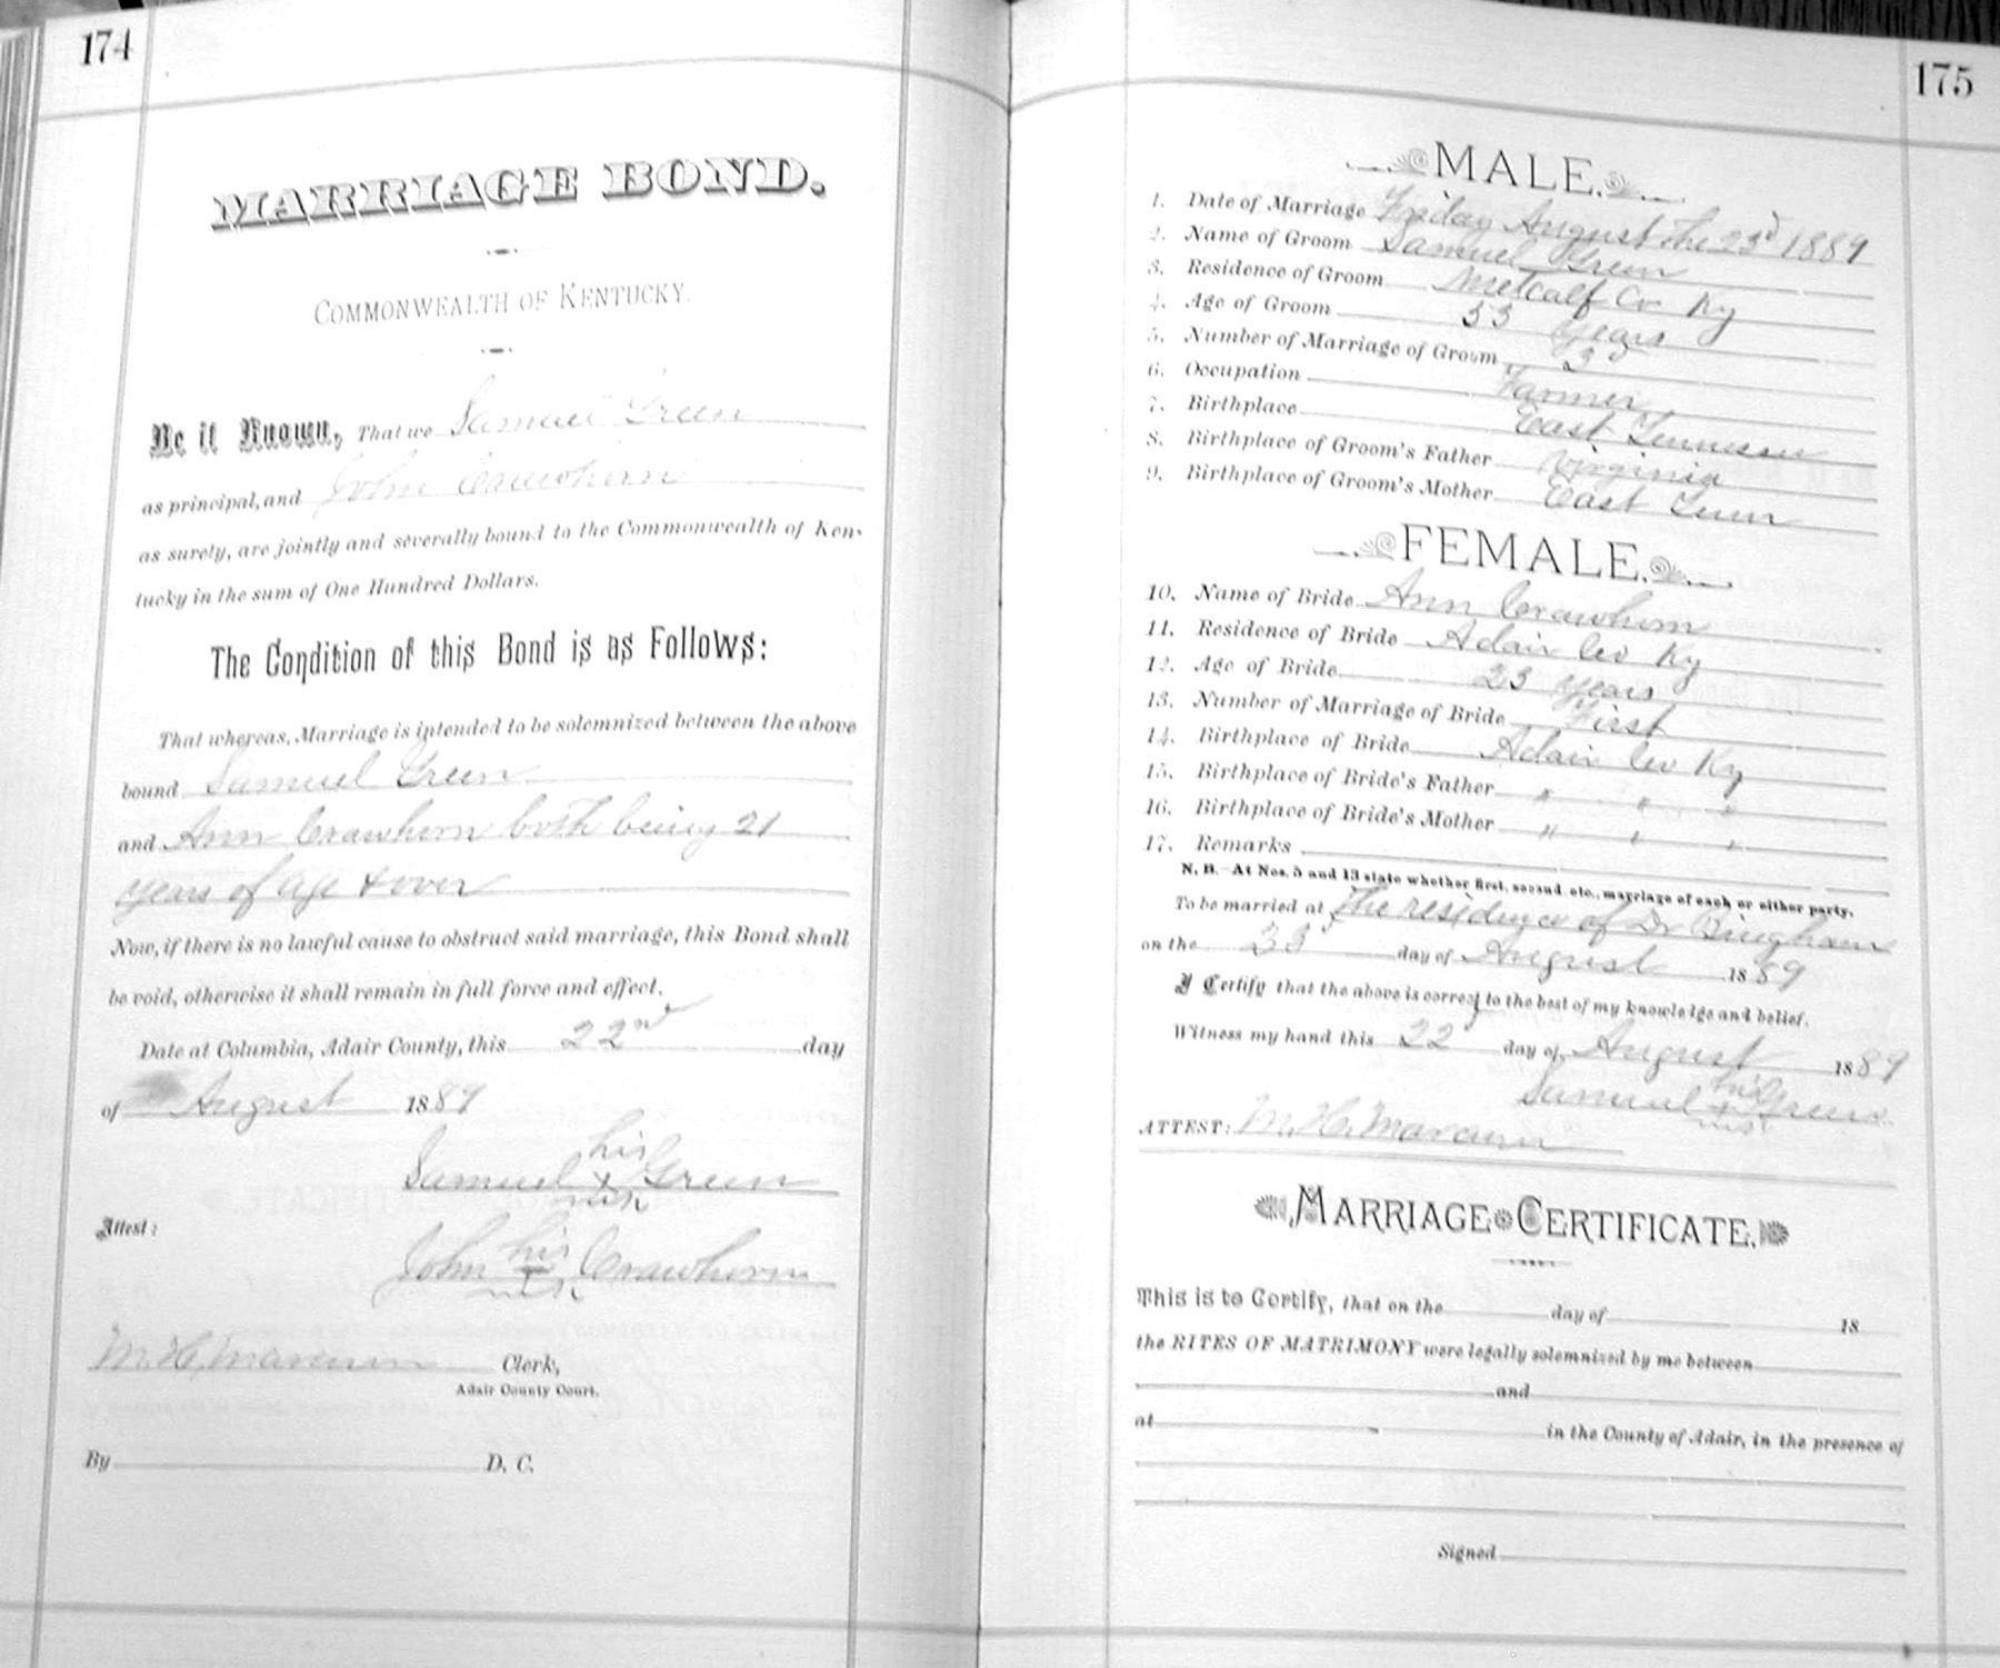 174
MARRIAGE BOND.
COMMONWEALTH OF KENTUCKY.
Be it Known, That we Samuel Green
as principal, and John Crawhorn
as surety, are jointly and severally bound to the Commonwealth of Ken-
tucky in the sum of One Hundred Dollars.
The Condition of this Bond is as Follows:
That whereas, Marriage is intended to be solemnized between the above
bound Samuel Green
and Ann Crawhorn both being 21
years of age & over
Now, if there is no lawful cause to obstruct said marriage, this Bond shall
be void, otherwise it shall remain in full force and effect.
Date at Columbia, Adair County, this 22nd day
of August 1889
his
Samuel x Green
mark
Attest:
his
John x Crawhorn
mark
M. H. Clerk,
Adair County Court.
By D. C.
175
MALE.
1. Date of Marriage Friday August the 23d 1889
2. Name of Groom Samuel Green
3. Residence of Groom Metcalf Co Ky
4. Age of Groom 53 years
5. Number of Marriage of Groom 3d
6. Occupation Farmer
7. Birthplace East Tennessee
8. Birthplace of Groom's Father Virginia
9. Birthplace of Groom's Mother East Tenn
FEMALE.
10. Name of Bride Ann Crawhorn
11. Residence of Bride Adair Co Ky
12. Age of Bride 23 years
13. Number of Marriage of Bride First
14. Birthplace of Bride Adair Co Ky
15. Birthplace of Bride's Father " " "
16. Birthplace of Bride's Mother " " "
17. Remarks
N. B.—At Nos. 5 and 13 state whether first, second, etc., marriage of each or either party.
To be married at the residence of Dr Bingham
on the 23 day of August 1889
I Certify that the above is correct to the best of my knowledge and belief.
Witness my hand this 22 day of August 1889
his
Samuel x Green
mark
ATTEST: M. H.
MARRIAGE CERTIFICATE.
This is to Certify, that on the day of 18
the RITES OF MATRIMONY were legally solemnized by me between
and
at in the County of Adair, in the presence of
Signed